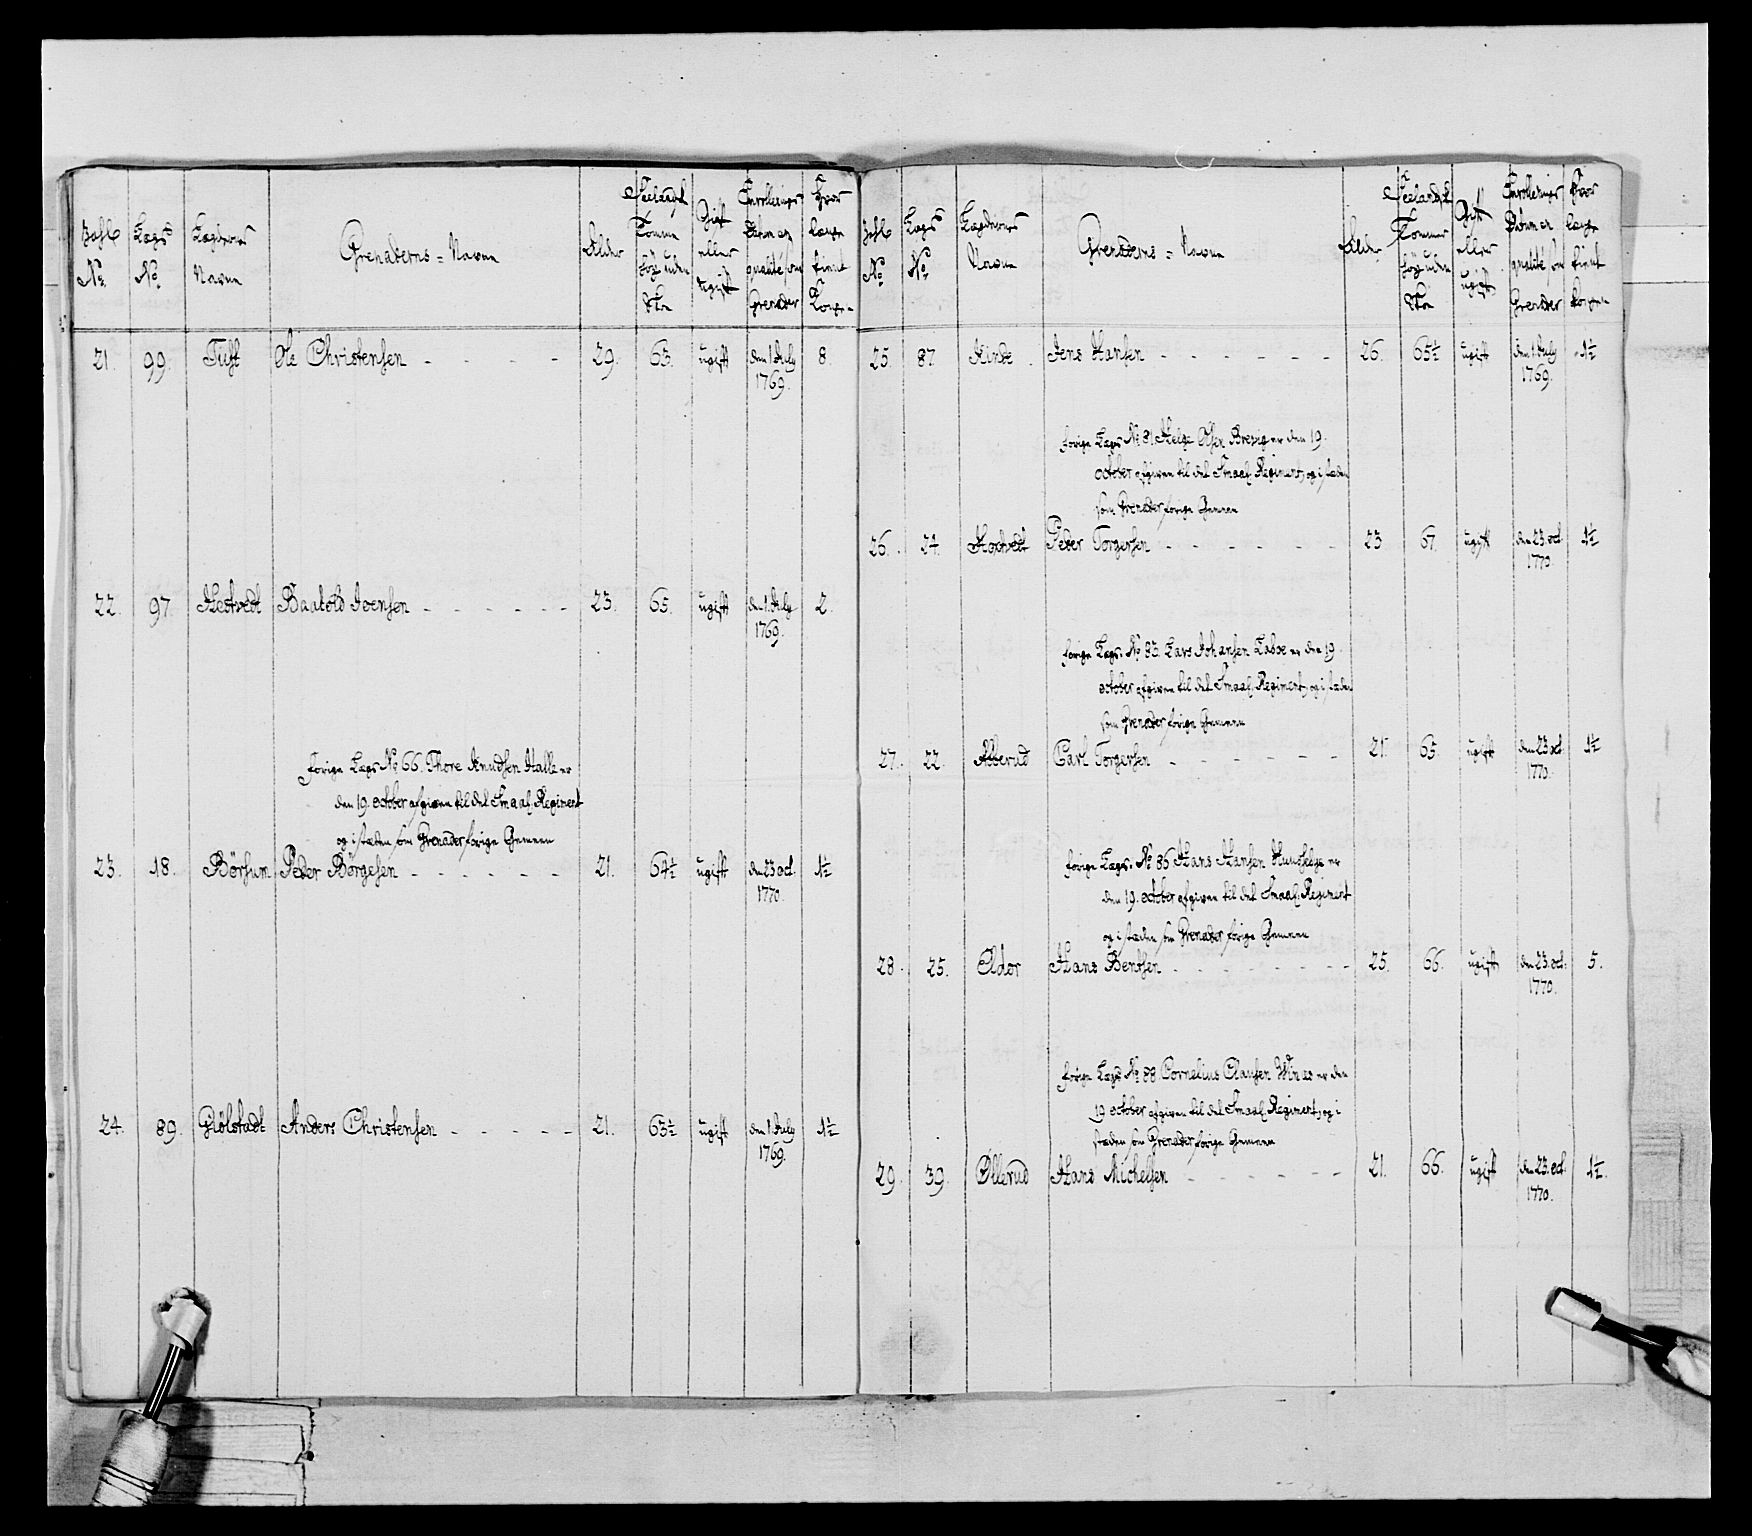 Zahl No.
Lægs No.
Lægdernes Navn
Grenaderns = Navn
Alder
Seelandsk Tommer høy uden Skoe
Gift eller ugift
Enrollerings Datum en qualité som Grenader
Hvor længe tient Kongen
21. 99. Tuft Ole Christensen - - - - - 29. 63. ugift den 1 July 8.
1769.
22. 97. Hestvedt Baatold Ivensen - - - - - - 23. 65. ugift den 1. July 2.
1769.
forige Lægs No 66. Thore Knudsen Halle er
den 19. october afgiven til det Smaal. Regiment
og i stæden som Grenader forige Gemeen
23. 18. Börsum Peder Börgesen - - - - - - 21. 64½ ugift den 23 oct. 1½
1770.
24. 89. Giölstadt Anders Christensen - - - - - 21. 63½ ugift den 1 July 1½
1769.
Zahl No.
Lægs No.
Lægdernes Navn
Grenaderns = Navn
Alder
Seelandsk Tommer høy uden Skoe
Gift eller ugift
Enrollerings Datum en qualité som Grenader
Hvor længe tient Kongen
25. 87 Hinde Jens Hansen - - - - - - 26. 65½ ugift den 1 July 1½
1769.
forige Lægs No 81. Helge Olsen Brevig er den 19.
october afgiven til det Smaal. Regiment, og i stæden
som Grenader forige Gemeen
26. 24. Peder Torgersen - - - - - - 23 67. ugift den 23. oct. 1½
1770.
forige Lægs. No 83. Lars Johansen er den 19
october afgiven til det Smaal. Regiment, og i stæden
som Grenader forige Gemeen
27. 22. Alberud Carl Torgersen - - - - - - 21 65 ugift den 23 oct. 1½
1770.
forige Lægs. No 86 Hans Hansen er
den 19. october afgiven til det Smaal. Regiment
og i stæden som Grenader forige Gemeen
28. 25. Eldor Hans Bentsen - - - - - - - - 25. 66. ugift den 23. oct. 5.
1770.
forige Lægs No 88. Cornelius Clausen er den
19 october afgiven til det Smaal. Regiment, og i
stæden som Grenader forige Gemeen
29. 39. Øllerud Hans Michelsen - - - - - 21. 66. ugift den 23. oct. 1½.
1770.